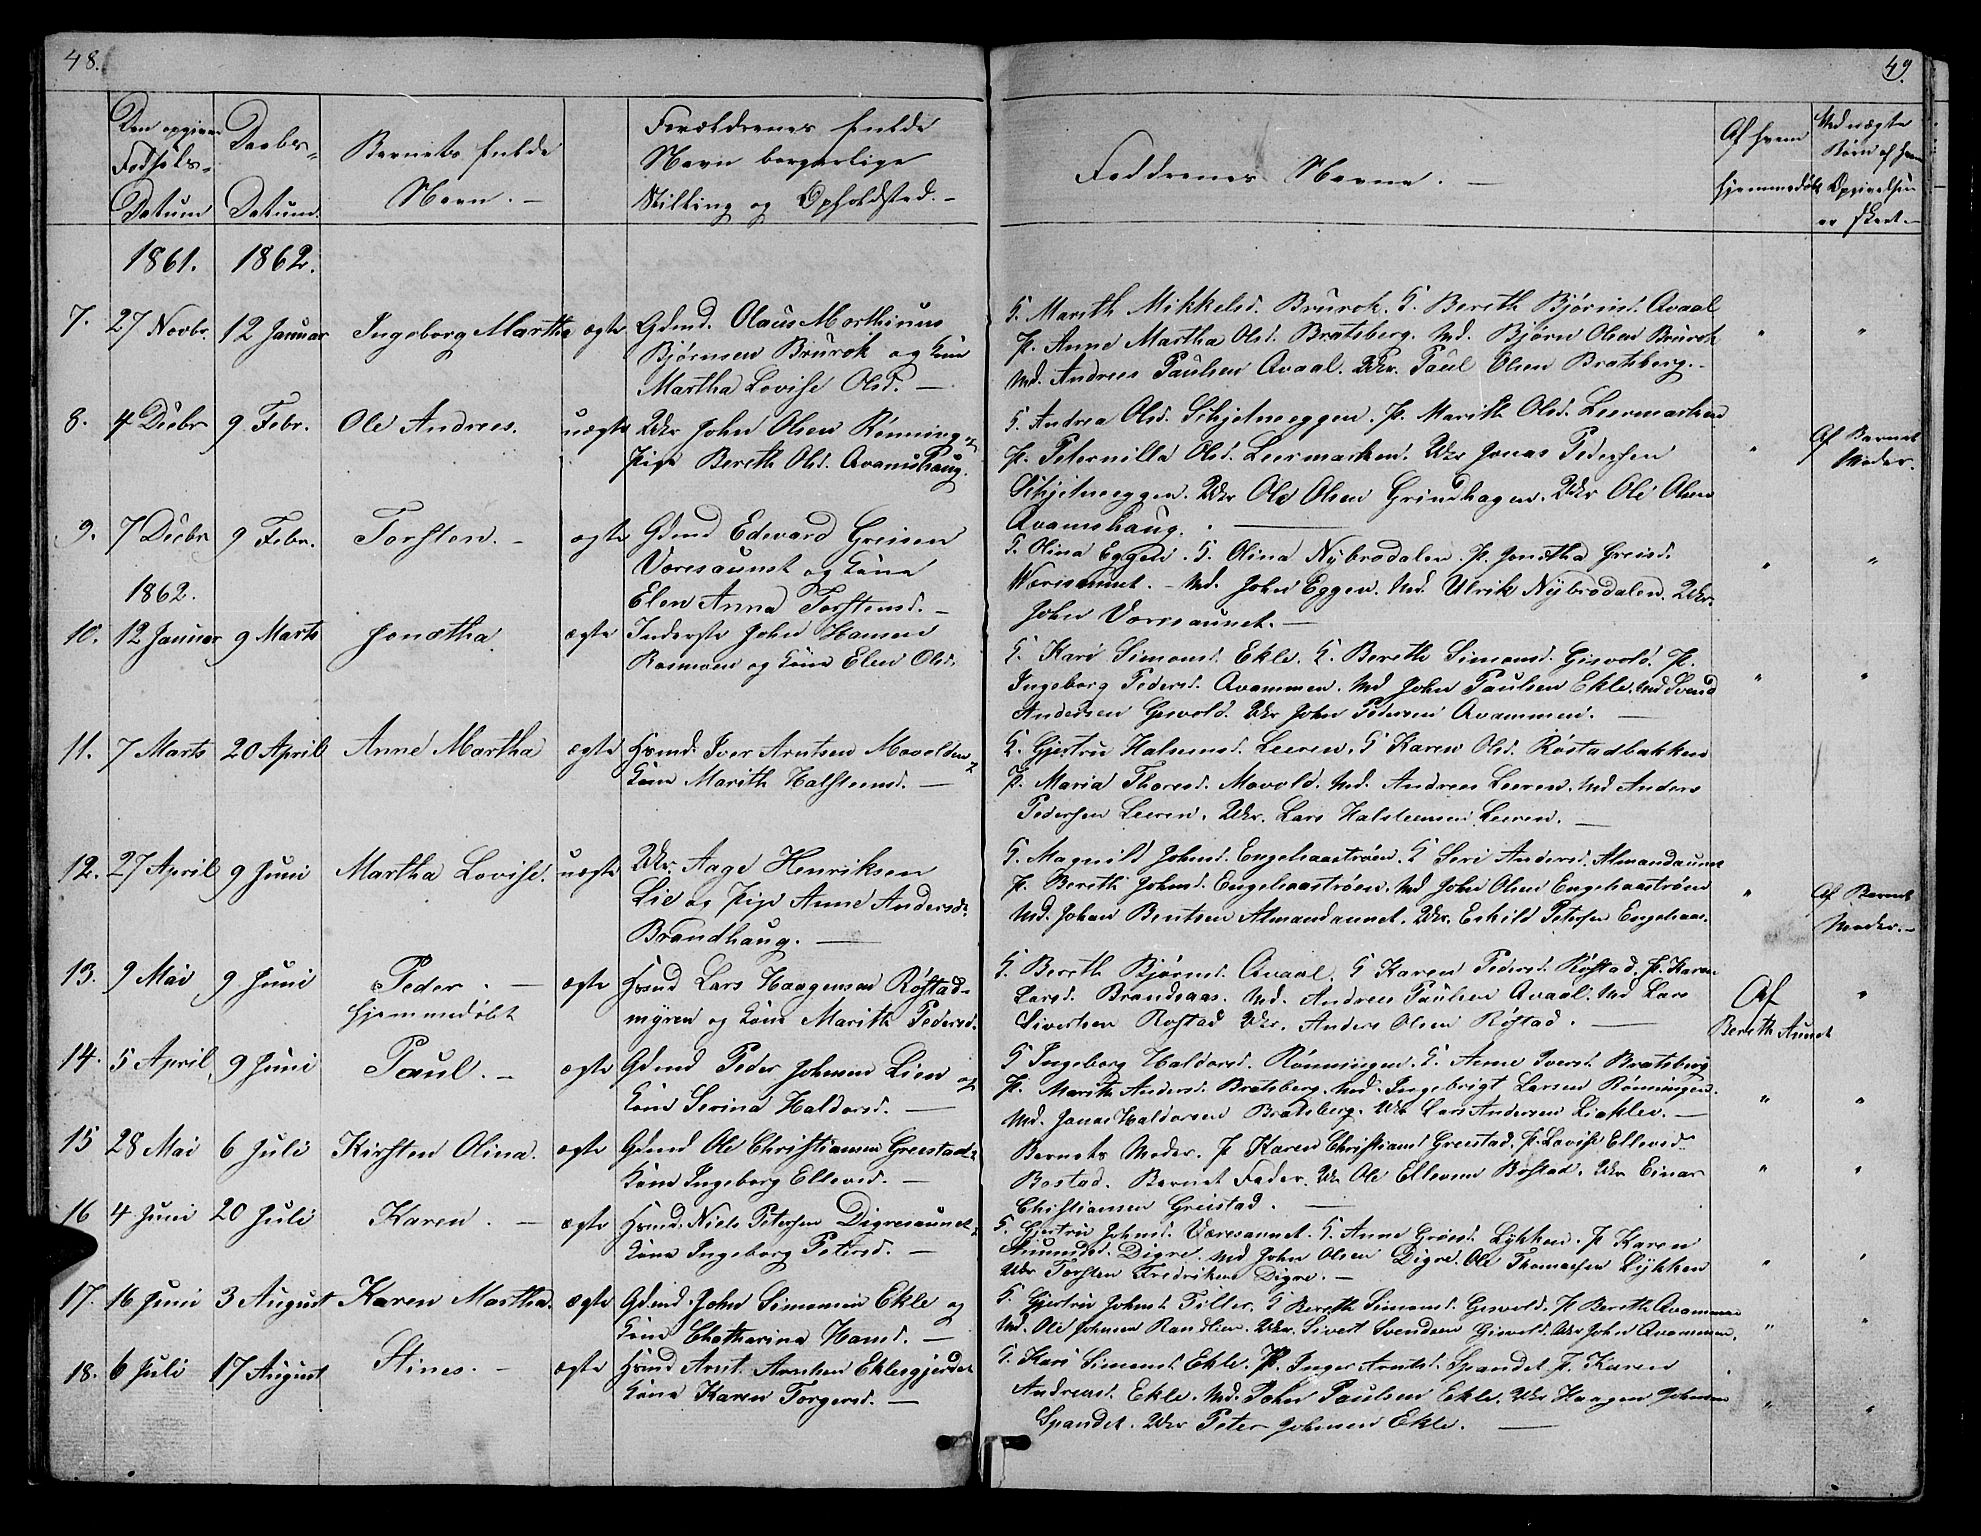 48.
Den opgivne Fødsels- Datum
Daabs- Datum.
Barnets fulde Navn. -
Forældrenes fulde Navn borgerlige Stilling og Opholdsted. -
1861. 1862.
7. 27 Novbr. 12 Januar Ingeborg Martha ægte Gdmd. Olaus Morthinus
Bjørnsen Brurok og Kone
Martha Lovise Olsd. -
8. 4 Decbr 9 Febr. Ole Andreas. uægte Ukr John Olsen Rønning og
Pige Bereth Olsd. Qvamshaug.
9. 7 Decbr 9 Febr. Torsten. - ægte Gdmd Edevard Greisen
Voresaunet og Kone
Elen Anna Torstensd. -
1862.
10. 12 Januar 9 Marts Jonætha ægte Inderste John Hansen
Rosmoen og Kone Elen Olsd.
11. 7 Marts 20 April Anne Martha ægte Hsmd. Iver Arntsen Movolden og
Kone Marith Halstensd. -
12. 27 April 9 Juni Martha Lovise. uægte Ukr. Aage Henriksen
Lie og Pige Anne Andersd.
Brandhaug. -
13. 9 Mai 9 Juni Peder. - ægte Hsmd Lars Haagensen Røstad-
hjemmedøbt myren og Kone Marith Pedersd.
14. 5 April 9 Juni Paul. - ægte Gdmd Peder Johnsen Lien og
Kone Serina Haldorsd. -
15 28 Mai 6 Juli Kirsten Olina. ægte Gdmd Ole Christiansen Greistad og
Kone Ingeborg Ellevsd. -
16 4 Juni 20 Juli Karen. - ægte Hsmd. Niels Petersen Digresaunet og
Kone Ingeborg Petersd. -
17. 16 Juni 3 August Karen Martha. ægte Gdmd. John Simonsen Ekle og
Kone Chatharina Hansd. -
18. 6 Juli 17 August Stines. - ægte Hsmd Arnt Arntsen Eklesgjerdet
Kone Karen Torgersd. -
49.
Faddrenes Navne. -
Af hvem hjemmedøbt
Ved uægte Børn af hvem Opgivelsen er skeet -
G. Marith Mikkelsd. Brurok. G. Bereth Bjørnsd. Qvaal
P. Anne Martha Olsd. Bratsberg. Md. Bjørn Olsen Brurok " "
Md. Andreas Paulsen Qvaal. Ukr. Paul Olsen Bratsberg. -
G. Andrea Olsd. Skjetneeggen. P. Marith Olsd. Leermarken
P. Peternilla Olsd. Leermarken. Ukr Jonas Pedersen " Af Barnets Moder.
Skjetneeggen. Ukr Ole Olsen Grindhagen. Ukr Ole Olsen
Qvamshaug. -
G. Olina Eggen. G. Olina Nybrodalen. P. Jonætha Greisd.
Væresaunet. - Md. John Eggen. Md. Ulrik Nybrodalen. Ukr. " "
John Voresaunet. -
G. Kari Simonsd. Ekle. G. Bereth Simonsd. Gisvold. P.
Ingeborg Pedersd. Qvammen. Md John Paulsen Ekle. Md Svend " "
Andersen Gisvold. Ukr John Pedersen Qvammen. -
G. Gjertru Halsensd. Leeren. G Karen Olsd. Røstadbakken
P. Maria Thoresd. Movold. Md. Andreas Leeren. Md Anders
Pedersen Leeren. Ukr. Lars Halsteensen Leeren. -
G. Magnild Johnsd. Engelsaastrøen. G Seri Andersd. Almandaunet
P. Bereth Johnsd. Engelsaastrøen. Md John Olsen Engelsaastrøen " Af Barnets Moder. -
Md. Johan Bentsen Almandaunet. Ukr. Eskild Petersen Engelsaas.
G. Bereth Bjørnsd. Qvaal. G Karen Pedersd. Røstad. P. Karen
Larsd. Brandsaas. Md. Andreas Paulsen Qvaal. Md Lars Af Bereth Aunet "
Sivertsen Røstad Ukr. Anders Olsen Røstad. -
G Ingeborg Haldorsd. Rønningen. G. Anne Iversd. Bratsberg
P. Marith Andersd. Bratsberg. Md. Ingebrigt Larsen Rønningen. " "
Md. Jonas Haldorsen Bratsberg. Ukr Lars Andersen Liaklev. -
Barnets Moder. P Karen Christiansd Greistad. P. Lovise Ellevsd
Bostad. Barnet Fader. Ukr Ole Ellevsen Bostad. Ukr Einar " "
Christiansen Greistad. -
G. Gjertru Johnsd. Væresaunet. G. Anne Grøsd. Lykken. P Karen
Amundsd. Digre. Md John Olsen Digre. Ole Thomassen Lykken " "
Ukr Torsten Fredriksen Digre. -
G. Gjertru Johnsd Tiller. G Bereth Simonsd. Gisvold. P Bereth Qvammen
Md. Ole Johnsen Randlien. Ukr. Sivert Svendsen Gisvold. Ukr John Qvammen. " "
G. Kari Simonsd. Ekle. P. Inger Arntsd. Spandet. P. Karen
Andreasd. Ekle. Md. John Paulsen Ekle. Ukr Haagen Johnsen " "
Spandet. Ukr Peter Johnsen Ekle. -